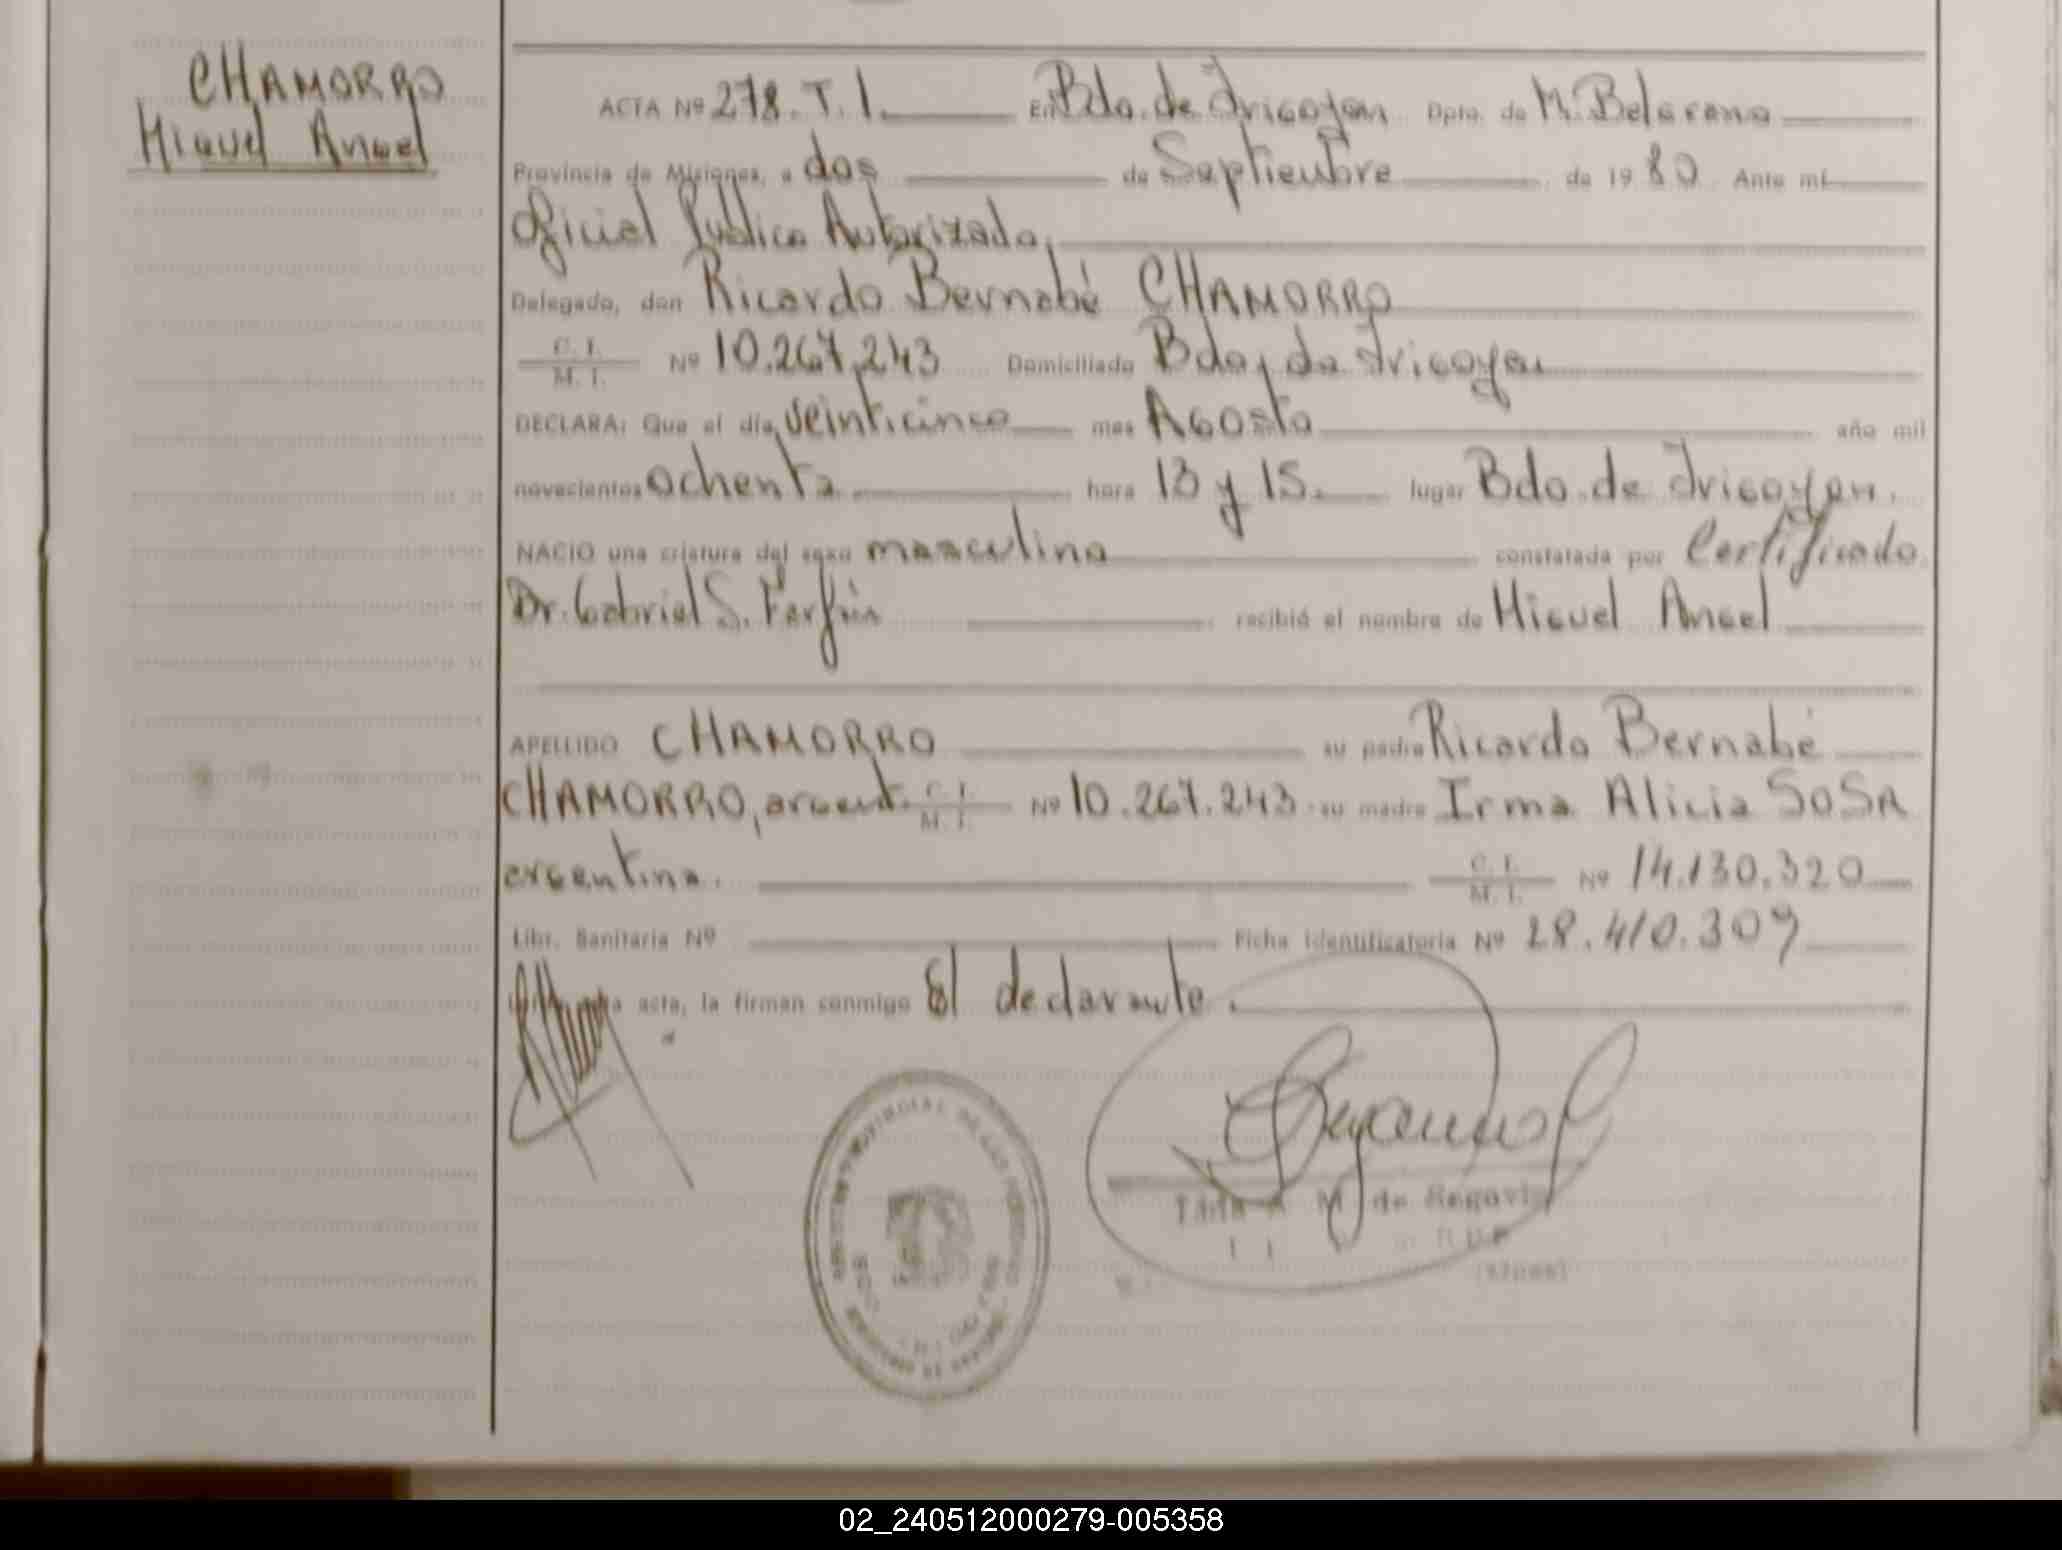 CHAMORRO
Miguel Angel
ACTA Nº 278. T. I. En Bdo. de Irigoyen Dpto. de M. Belgrano
Provincia de Misiones, a dos de Septiembre de 1980 Ante mí
Oficial Publico Autorizado,
Delegado, don Ricardo Bernabé CHAMORRO
C. I. / M. I. Nº 10.267.243 Domiciliado Bdo, de Irigoyen
DECLARA: Que el día veinticinco mes Agosto año mil
novecientos ochenta hora 13 y 15. lugar Bdo. de Irigoyen.
NACIO una criatura del sexo masculino constatada por Certificado
Dr. Gabriel S. recibió el nombre de Miguel Angel
APELLIDO CHAMORRO su padre Ricardo Bernabé
CHAMORRO, argent. C. I. / M. I. Nº 10.267.243 su madre Irma Alicia SOSA
argentina. C. I. / M. I. Nº 14.130.320
Libr. Sanitaria Nº Ficha Identificatoria Nº 28.410.309
acta, la firman conmigo El declarante.
M de Segovia
02_240512000279-005358